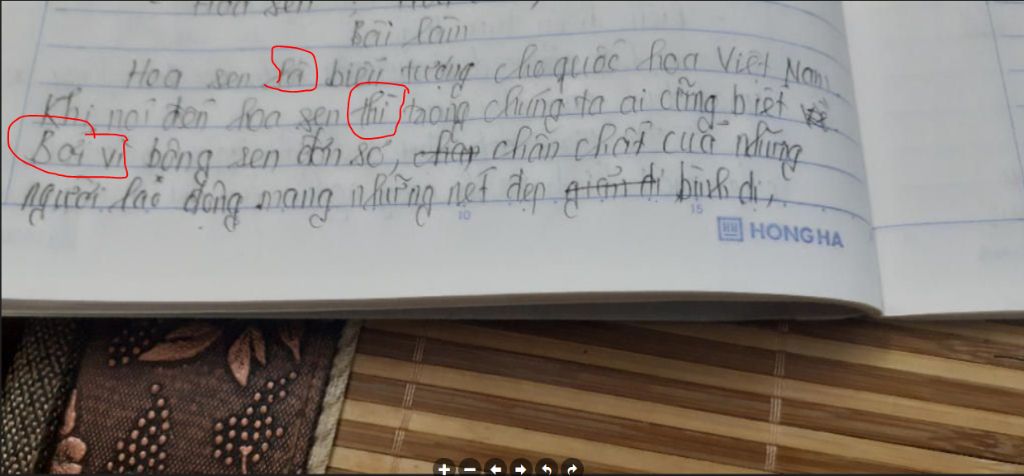 Hoa sen
Bài làm
Hoa sen là biểu tượng cho quốc hoa Việt Nam.
Khi nói đến hoa sen thì trong chúng ta ai cũng biết
Bởi vì bông sen đơn sơ, chân chất của những
người lao động mang những nét đẹp giản dị bình dị,
10
15
HONG HA